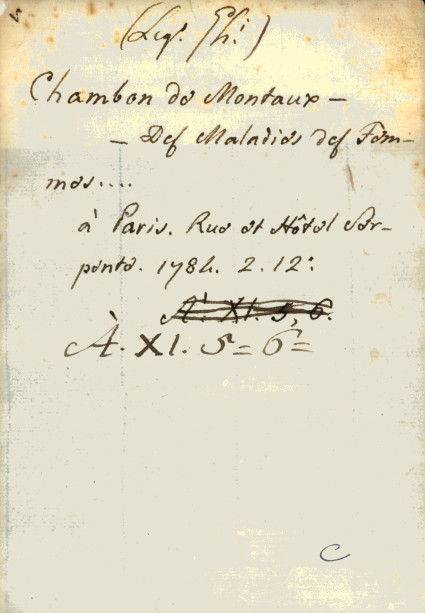 (Leg. Gh.)
Chambon de Montaux —
— Des Maladies des Fem-
mes....
à Paris. Rue et Hôtel Ser-
pente. 1784. 2. 12:
A. XI. 5, 6.
À. XI. 5= 6=
C